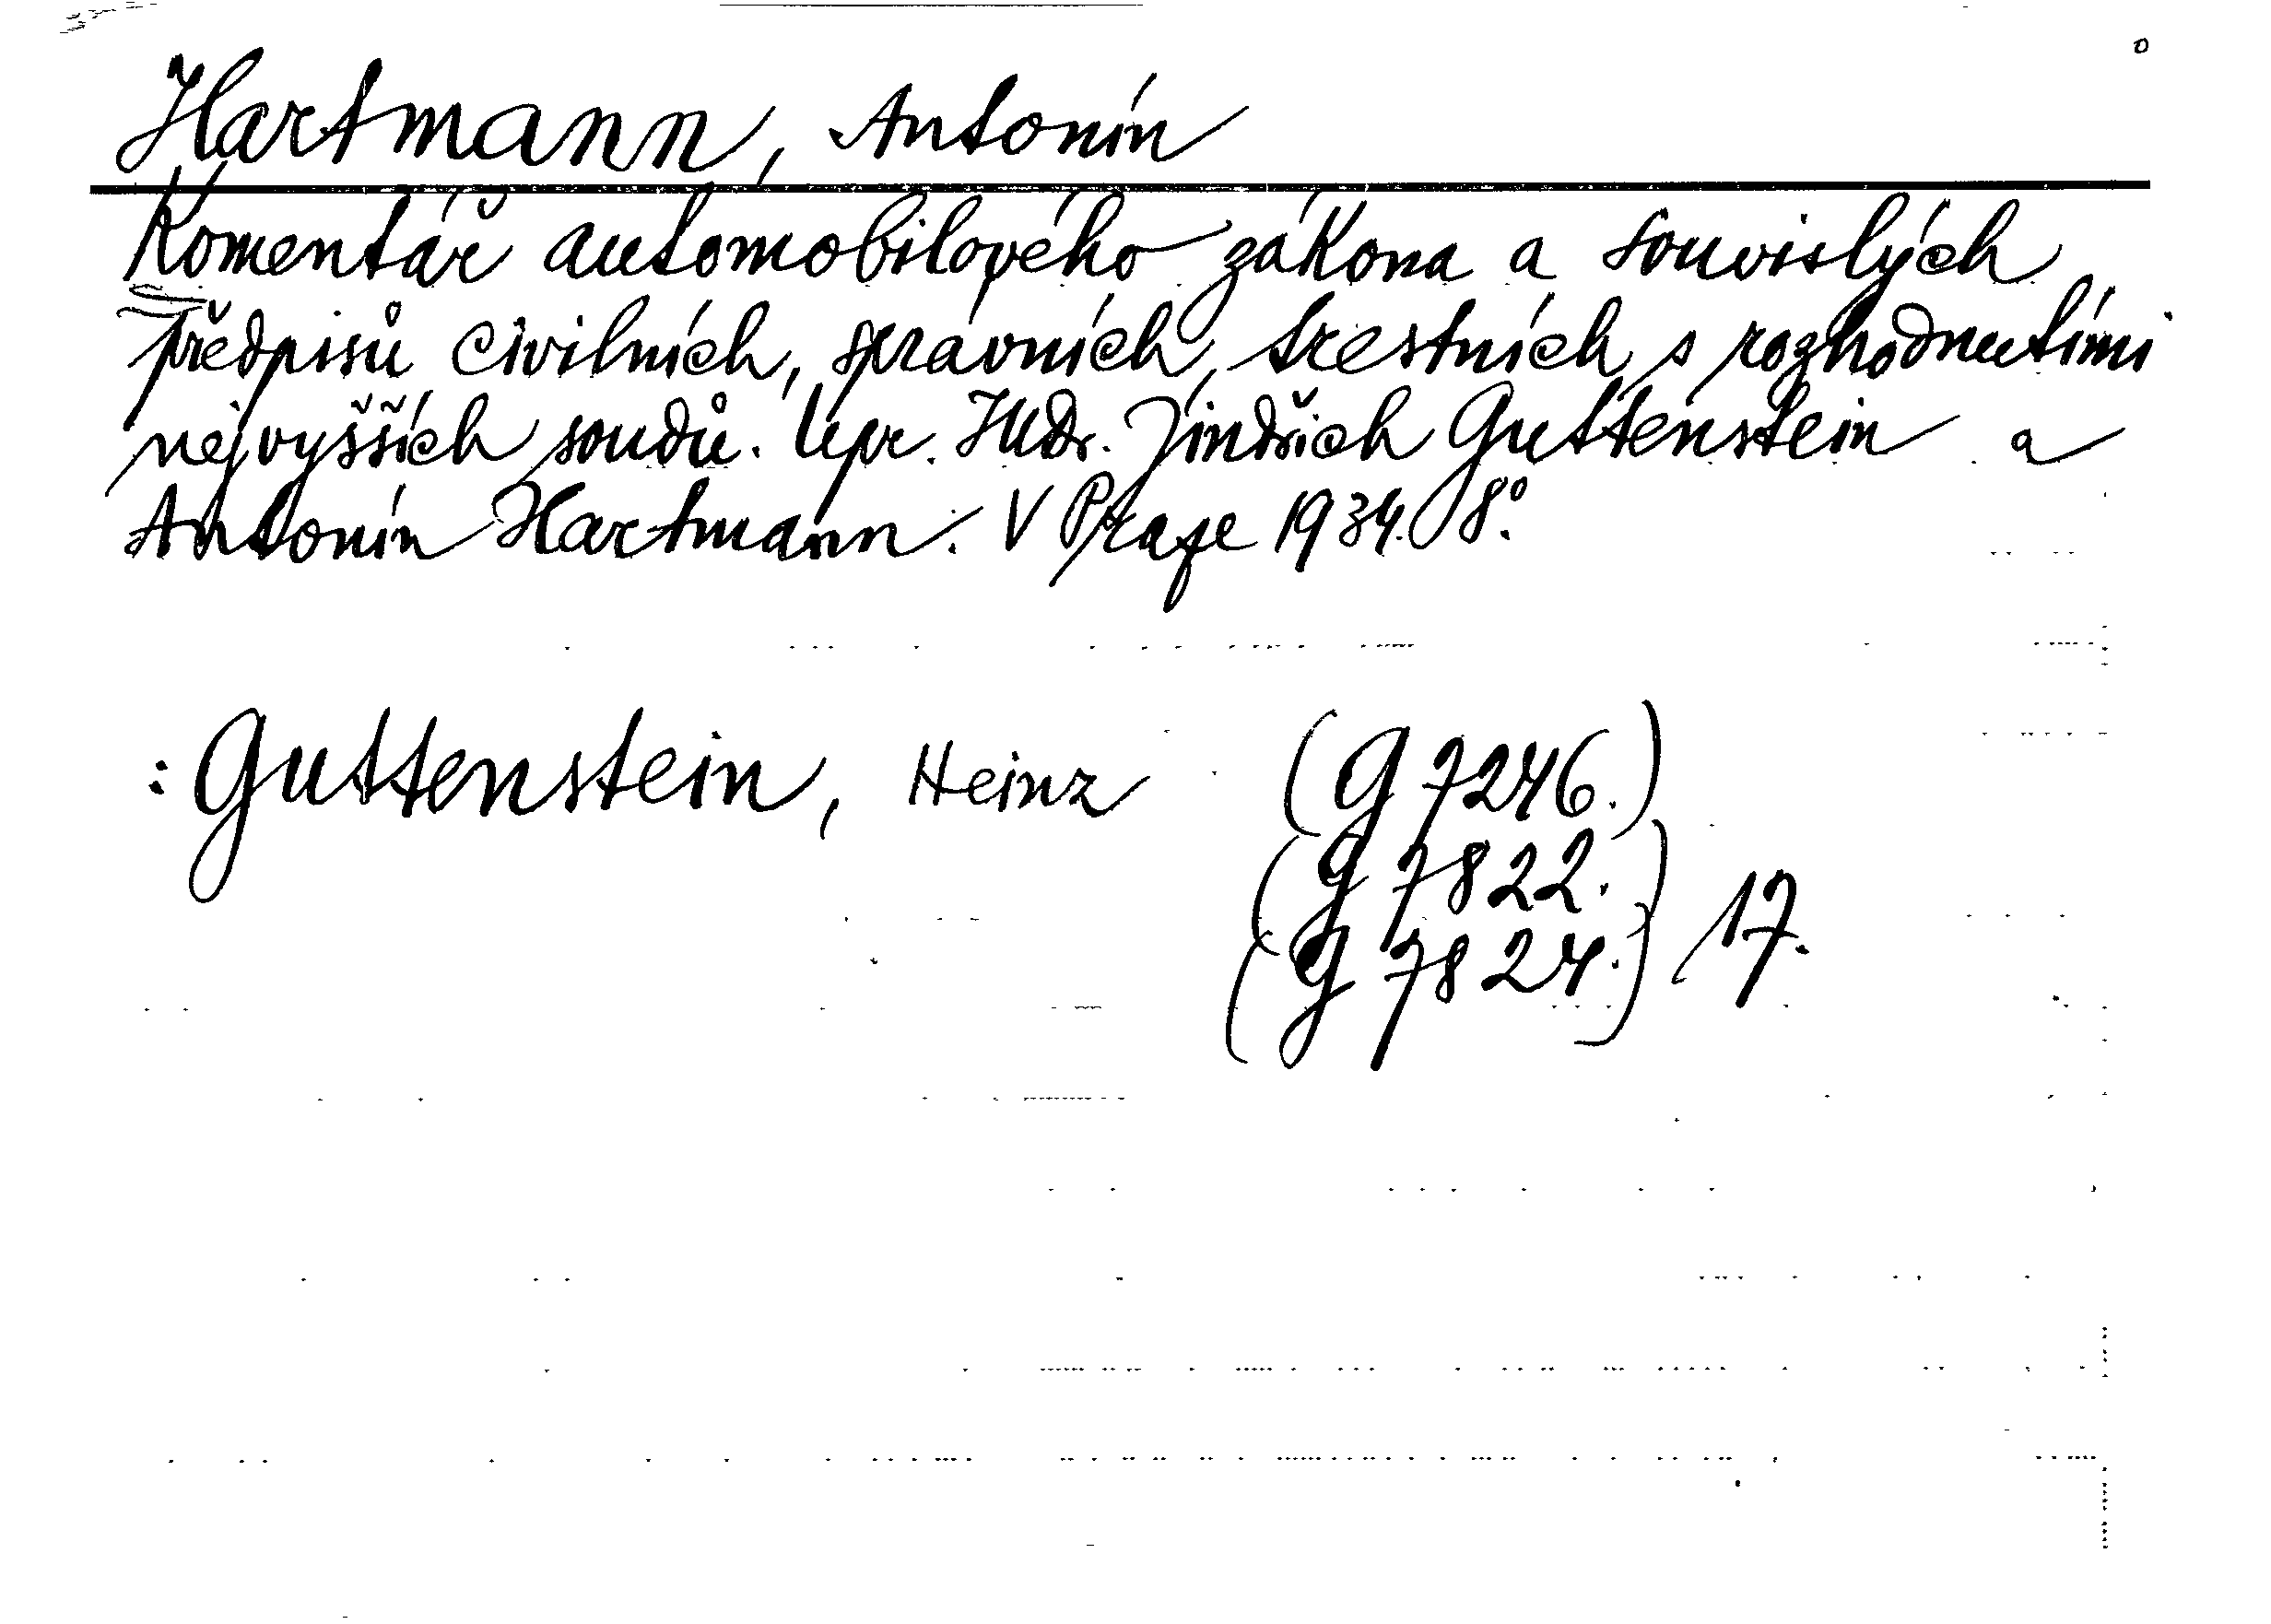 Hartmann, Antonín
Komentář automobilového zákona a souvislých
předpisů civilních, správních, trestních s rozhodnutími
nejvyšších soudů. Upr. JUDr. Jindřich Guttenstein a
Antonín Hartmann. V Praze 1934. 8°.
: Guttenstein, Heinz (G 7246.)
(G 7822.)
(G 7824.) 17.